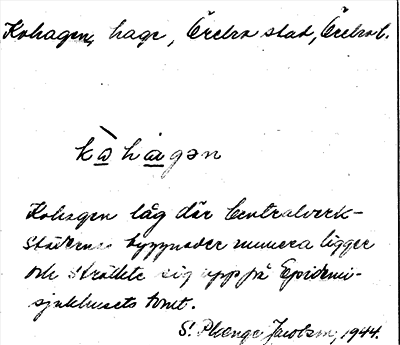 Kohagen, hage, Örebro stad, Örebro l.
kò̲ha̲gən
Kohagen låg där Centralverk-
städernas byggnader numera ligger
och sträckte sig upp på Epidemi-
sjukhusets tomt.
S. Jacobson, 1944.